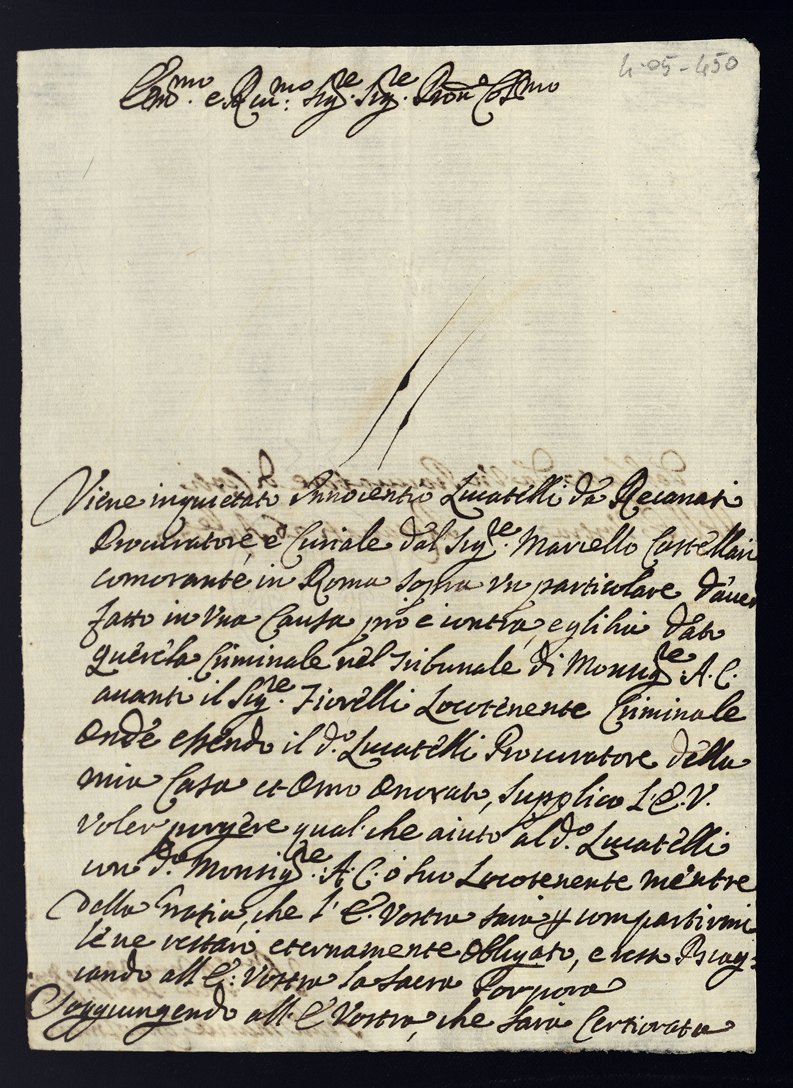 4-05-450
Em.mo e Rev.mo Sig.re Sig.re Pron. Col.mo
Viene inquietato Innocentio Lucatelli da Recanati
Procuratore, e Curiale dal Sig.re Marcello Castellani
comorante in Roma sopra un particolare d'auer
fatto in una Causa pro e contra, e gli hà dato
querela Criminale nel Tribunale di Monsig.re A. C.
auanti il Sig.re Fiorelli Locotenente Criminale
Onde essendo il d.o Lucatelli Procuratore della
mia Casa et Omo Onorato, supplico l'E. V.
voler porgere qual che aiuto al d.o Lucatelli
con d.o Monsig.re A. C. ò suo Locotenente mentre
della gratia, che l'E. Vostra sarà p compartirmi
le ne restarò eternamente obligato, e resto
all'E. Vostra la Sacra Porpora
Soggiungendo all'E. Vostra, che sarà Certiorata